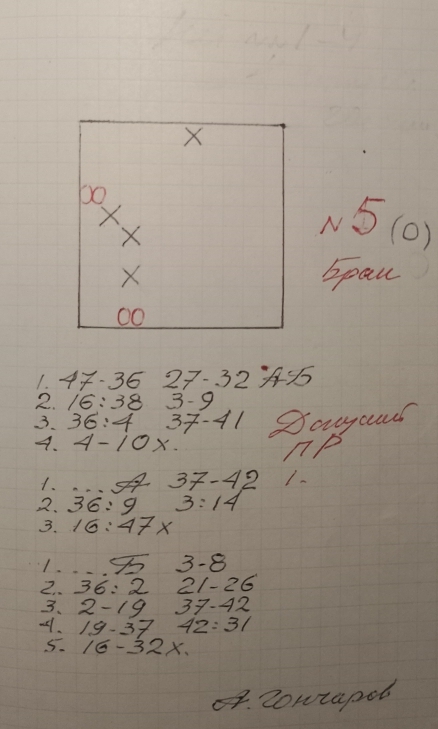 №5 (0)
Брак
1. 47-36 27-32 А-Б
2. 16:38 3-9
3. 36:4 37-41
4. 4-10х.
ПР
1. .... А 37-42 1.
2. 36:9 3:14
3. 16:47х
1. .... Б 3-8
2. 36:2 21-26
3. 2-19 37-42
4. 19-37 42:31
5. 16-32х.
А. Гончаров